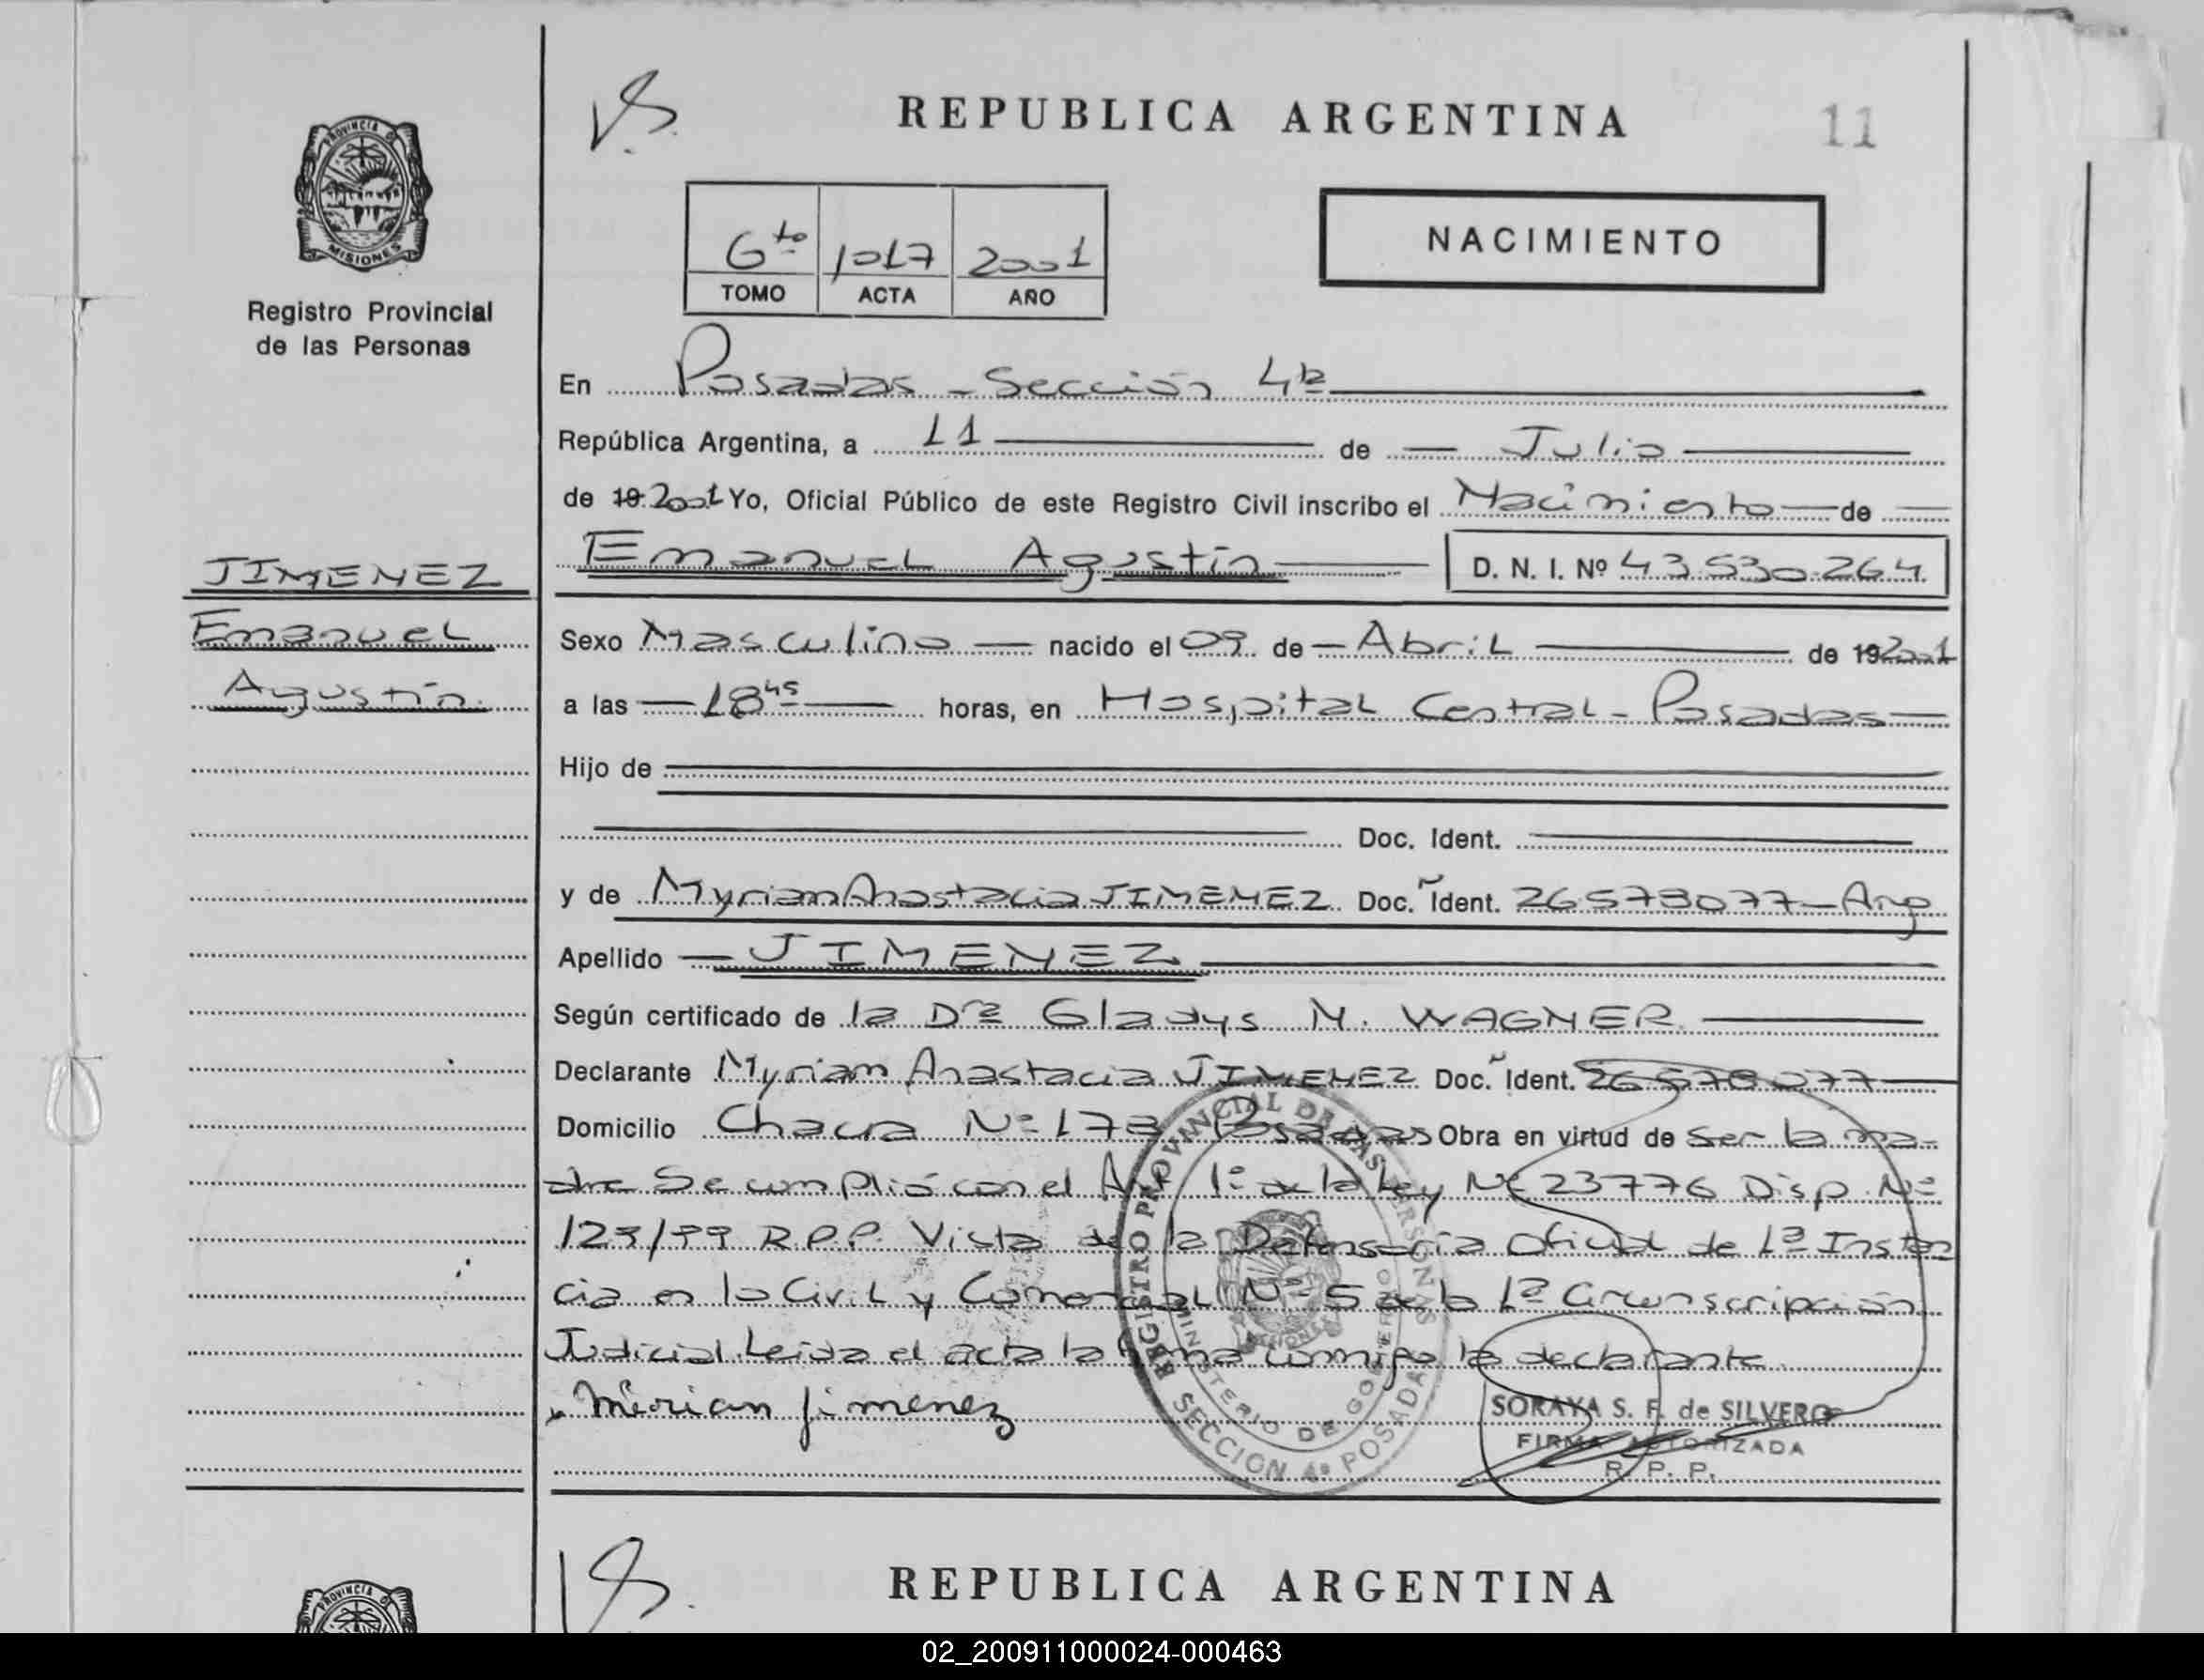 REPUBLICA ARGENTINA
11
PROVINCIA DE
MISIONES
Registro Provincial
de las Personas
6to 1017 2001
TOMO ACTA AÑO
NACIMIENTO
En Posadas - Sección 4ta
República Argentina, a 11 de Julio
de 19 2001 Yo, Oficial Público de este Registro Civil inscribo el Nacimiento de
Emanuel Agustín D. N. I. Nº 43.530.264
JIMENEZ
Emanuel
Agustín
Sexo Masculino nacido el 09 de Abril de 19 2001
a las 18 45 horas, en Hospital Central - Posadas
Hijo de
Doc. Ident.
y de Myrian Anastacia JIMENEZ Doc. Ident. 26578077 - Arg
Apellido JIMENEZ
Según certificado de la Dra Gladys N. WAGNER
Declarante Myriam Anastacia JIMENEZ Doc. Ident. 26578077
Domicilio Chacra Nº 178 Posadas Obra en virtud de ser la ma-
dre Se cumplió con el Art 1º de la Ley Nº 23776 Disp. Nº
129/99 R.P.P. Vista de la Defensoría Oficial de 1ª Instan
cia en lo Civil y Comercial Nº 5 de la 1ª Circunscripción
Judicial. Leída el acta la firma conmigo la declarante
Mirian Jimenez
REGISTRO PROVINCIAL DE LAS PERSONAS
MINISTERIO DE GOBIERNO
SECCION 4ª POSADAS
SORAYA S. F. de SILVERO
FIRMA AUTORIZADA
R. P. P.
REPUBLICA ARGENTINA
PROVINCIA DE
02_200911000024-000463